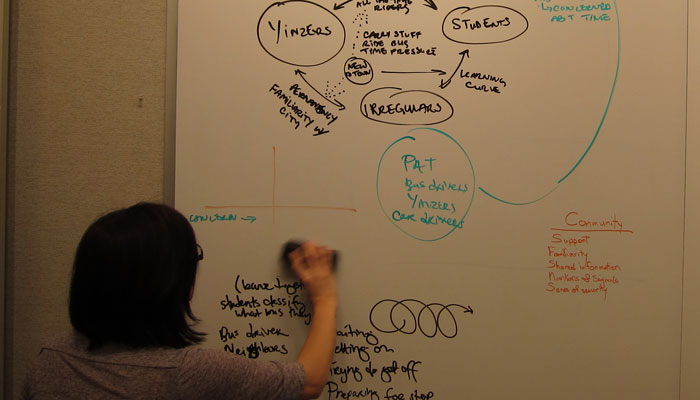 ALL
RIDERS
YINZERS
STUDENTS
CARRY STUFF
RIDE BUS
TIME PRESSURE
NEW
LEARNING
CURVE
PERMANENCY
FAMILIARITY W/
CITY
IRREGULARS
CONCERNED
ABT TIME
PAT
Bus drivers
YINZERS
Car drivers
CONCERN →
Community
Support
Familiarity
Shared information
Markers & Signals
Sense of security
students classif
what bus they
Bus driver
Neighbors
aiting
etting on
Trying to get off
Preparing for stop